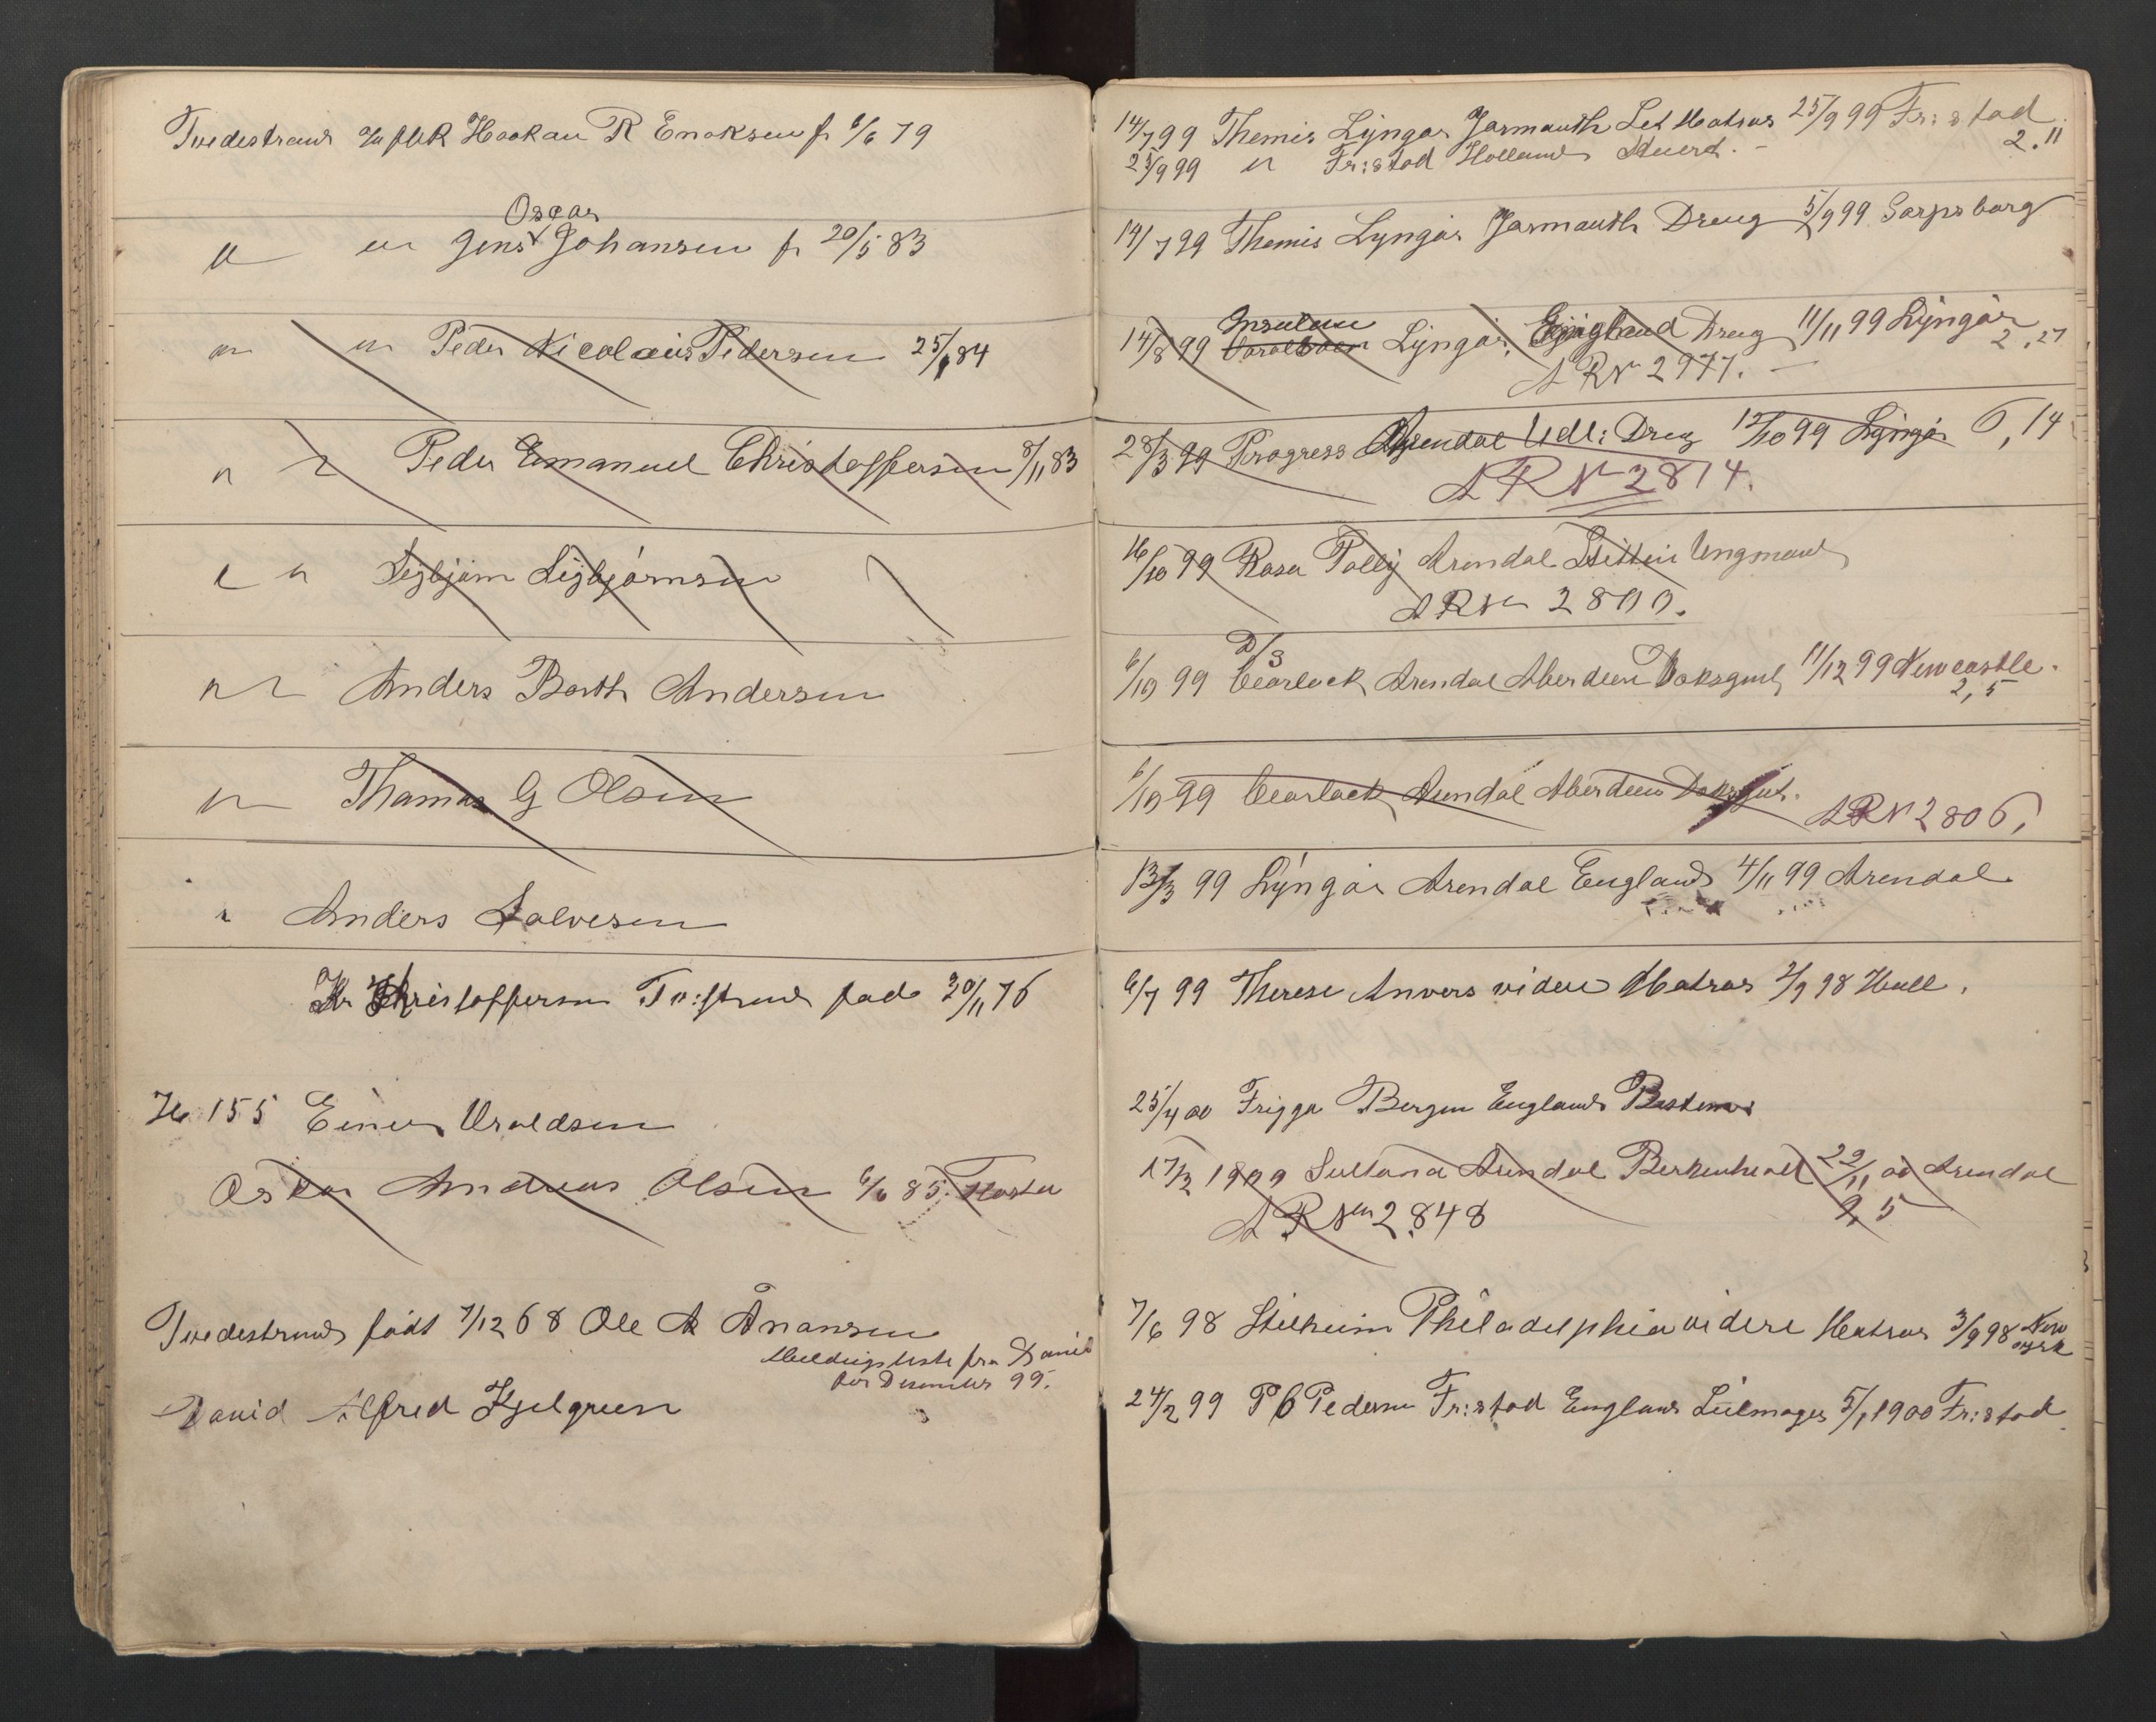 Tvedestrand Haakan R Enoksen f 6/6 79
Oscar
Jens Johansen f 20/5 83
Peder Nicolais Pedersen 25/1 84
Peder Emanuel Christoffersen 8/11 83
Sigbjørn Sigbjørnsen
Anders Barth Andersen
Thomas G Olsen
Anders Salvesen
Kr Christoffersen Tv:strand fød 30/11 76
155 Einer Uraldsen
Oskar Andreas Olsen 6/6 85
Tvedestrand født 7/12 68 Ole A Ånansen
fra David
for Desember 99.
David Alfred Kjelgreen
14/7 99 Themis Lyngør Jarmauth Let Matros 25/9 99 Fr:stad
2.11
25/9 99 " Fr:stad Holland Stuert.
14/7 99 Themis Lyngør Jarmauth Dreng 5/9 99 Sarpsborg
Insulan
14/8 99 Lyngør England Dreng 11/11 99 Lyngør
2,27
A R N 2977.
28/3 99 Progress Arendal Udl: Dreng 12/10 99 Lyngør 6,14
A R N 2814.
16/10 99 Rosa Polly Arendal Stettin Ungmand
A R N
D/S
6/10 99 Arendal Aberdeen 11/12 99 Newcastle.
2,5
6/10 99 Arendal Aberdeen
A R N 2806,
13/3 99 Lyngør Arendal England 4/11 99 Arendal
6/7 99 Therese Anvers videre Matros 2/9 98 Hull.
25/4 00 Frigga Bergen England Bestem
17/3 Sultana Arendal Berkenhead 22/11 00 Arendal
9,5
A R N 2848
7/6 98 Stilheim Philadelphia videre Matros 3/9 98 New
York
24/2 99 P C Pedersen Fr:stad England Seilmager 5/1 1900 Fr:stad